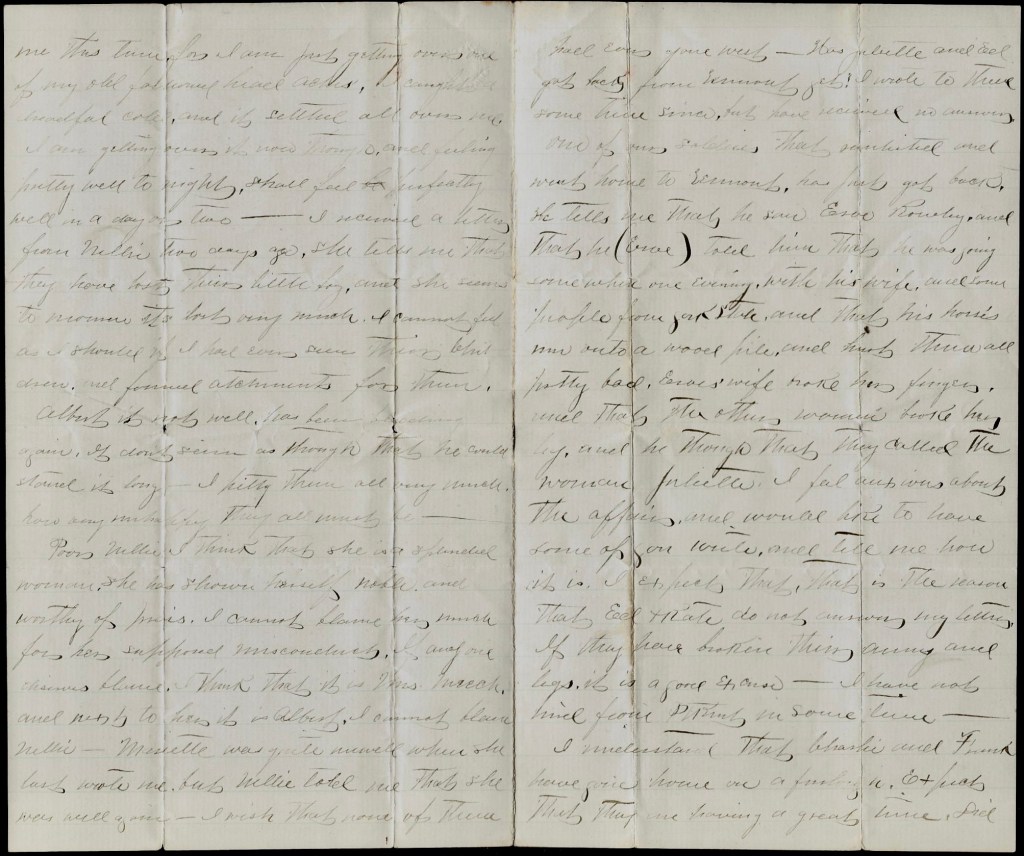 me this time for I am just getting over one
of my old fashioned head aches, I caught a
dreadful cold, and it settled all over me.
I am getting over it now though, and feeling
pretty well to night, shall feel perfectly
well in a day or two — I received a letter
from Nellie two days ago, she tells me that
they have lost their little boy, and she seems
to mourn its lost very much. I cannot feel
as I should if I had ever seen their chil-
dren, and formed atachments for them.
Albert is not well, has been bleeding
again. It dont seem as though that he could
stand it long — I pitty them all very much.
how very unhappy they all must be —
Poor Nellie I think that she is a splendid
woman, she has shown herself noble and
worthy of praise. I cannot blame her much
for her supposed misconduct, If any one
deserves blame, I think that it is Mrs.
and next to her it is Albert, I cannot blame
Nellie — Minette was quite unwell when she
last wrote me, but Nellie told me that she
was well again — I wish that none of them
had ever gone west — Has Juliette and Ed
got back from Vermont yet? I wrote to them
some time since, but have received no answer
one of our soldiers that reinlisted and
went home to Vermont, has just got back,
he tells me that he saw Esve Rowley, and
that he (Esve) told him that he was going
some where one evening, with his wife, and some
people from York State, and that his horses
run onto a wood pile, and hurt them all
pretty bad, Esves wife broke her finger,
and that the other woman broke her
leg, and he though that they called the
woman Juliette. I fel anxious about
the affair, and would like to have
some of you write, and tell me how
it is. I expect that, that is the reason
that Ed & Kate do not answer my letter,
If they have broken their arms and
legs, it is a good excuse — I have not
hird from in some time —
I understand that Charlie and Frank
have gone home on a furlough. Expect
that they are having a great time. Did